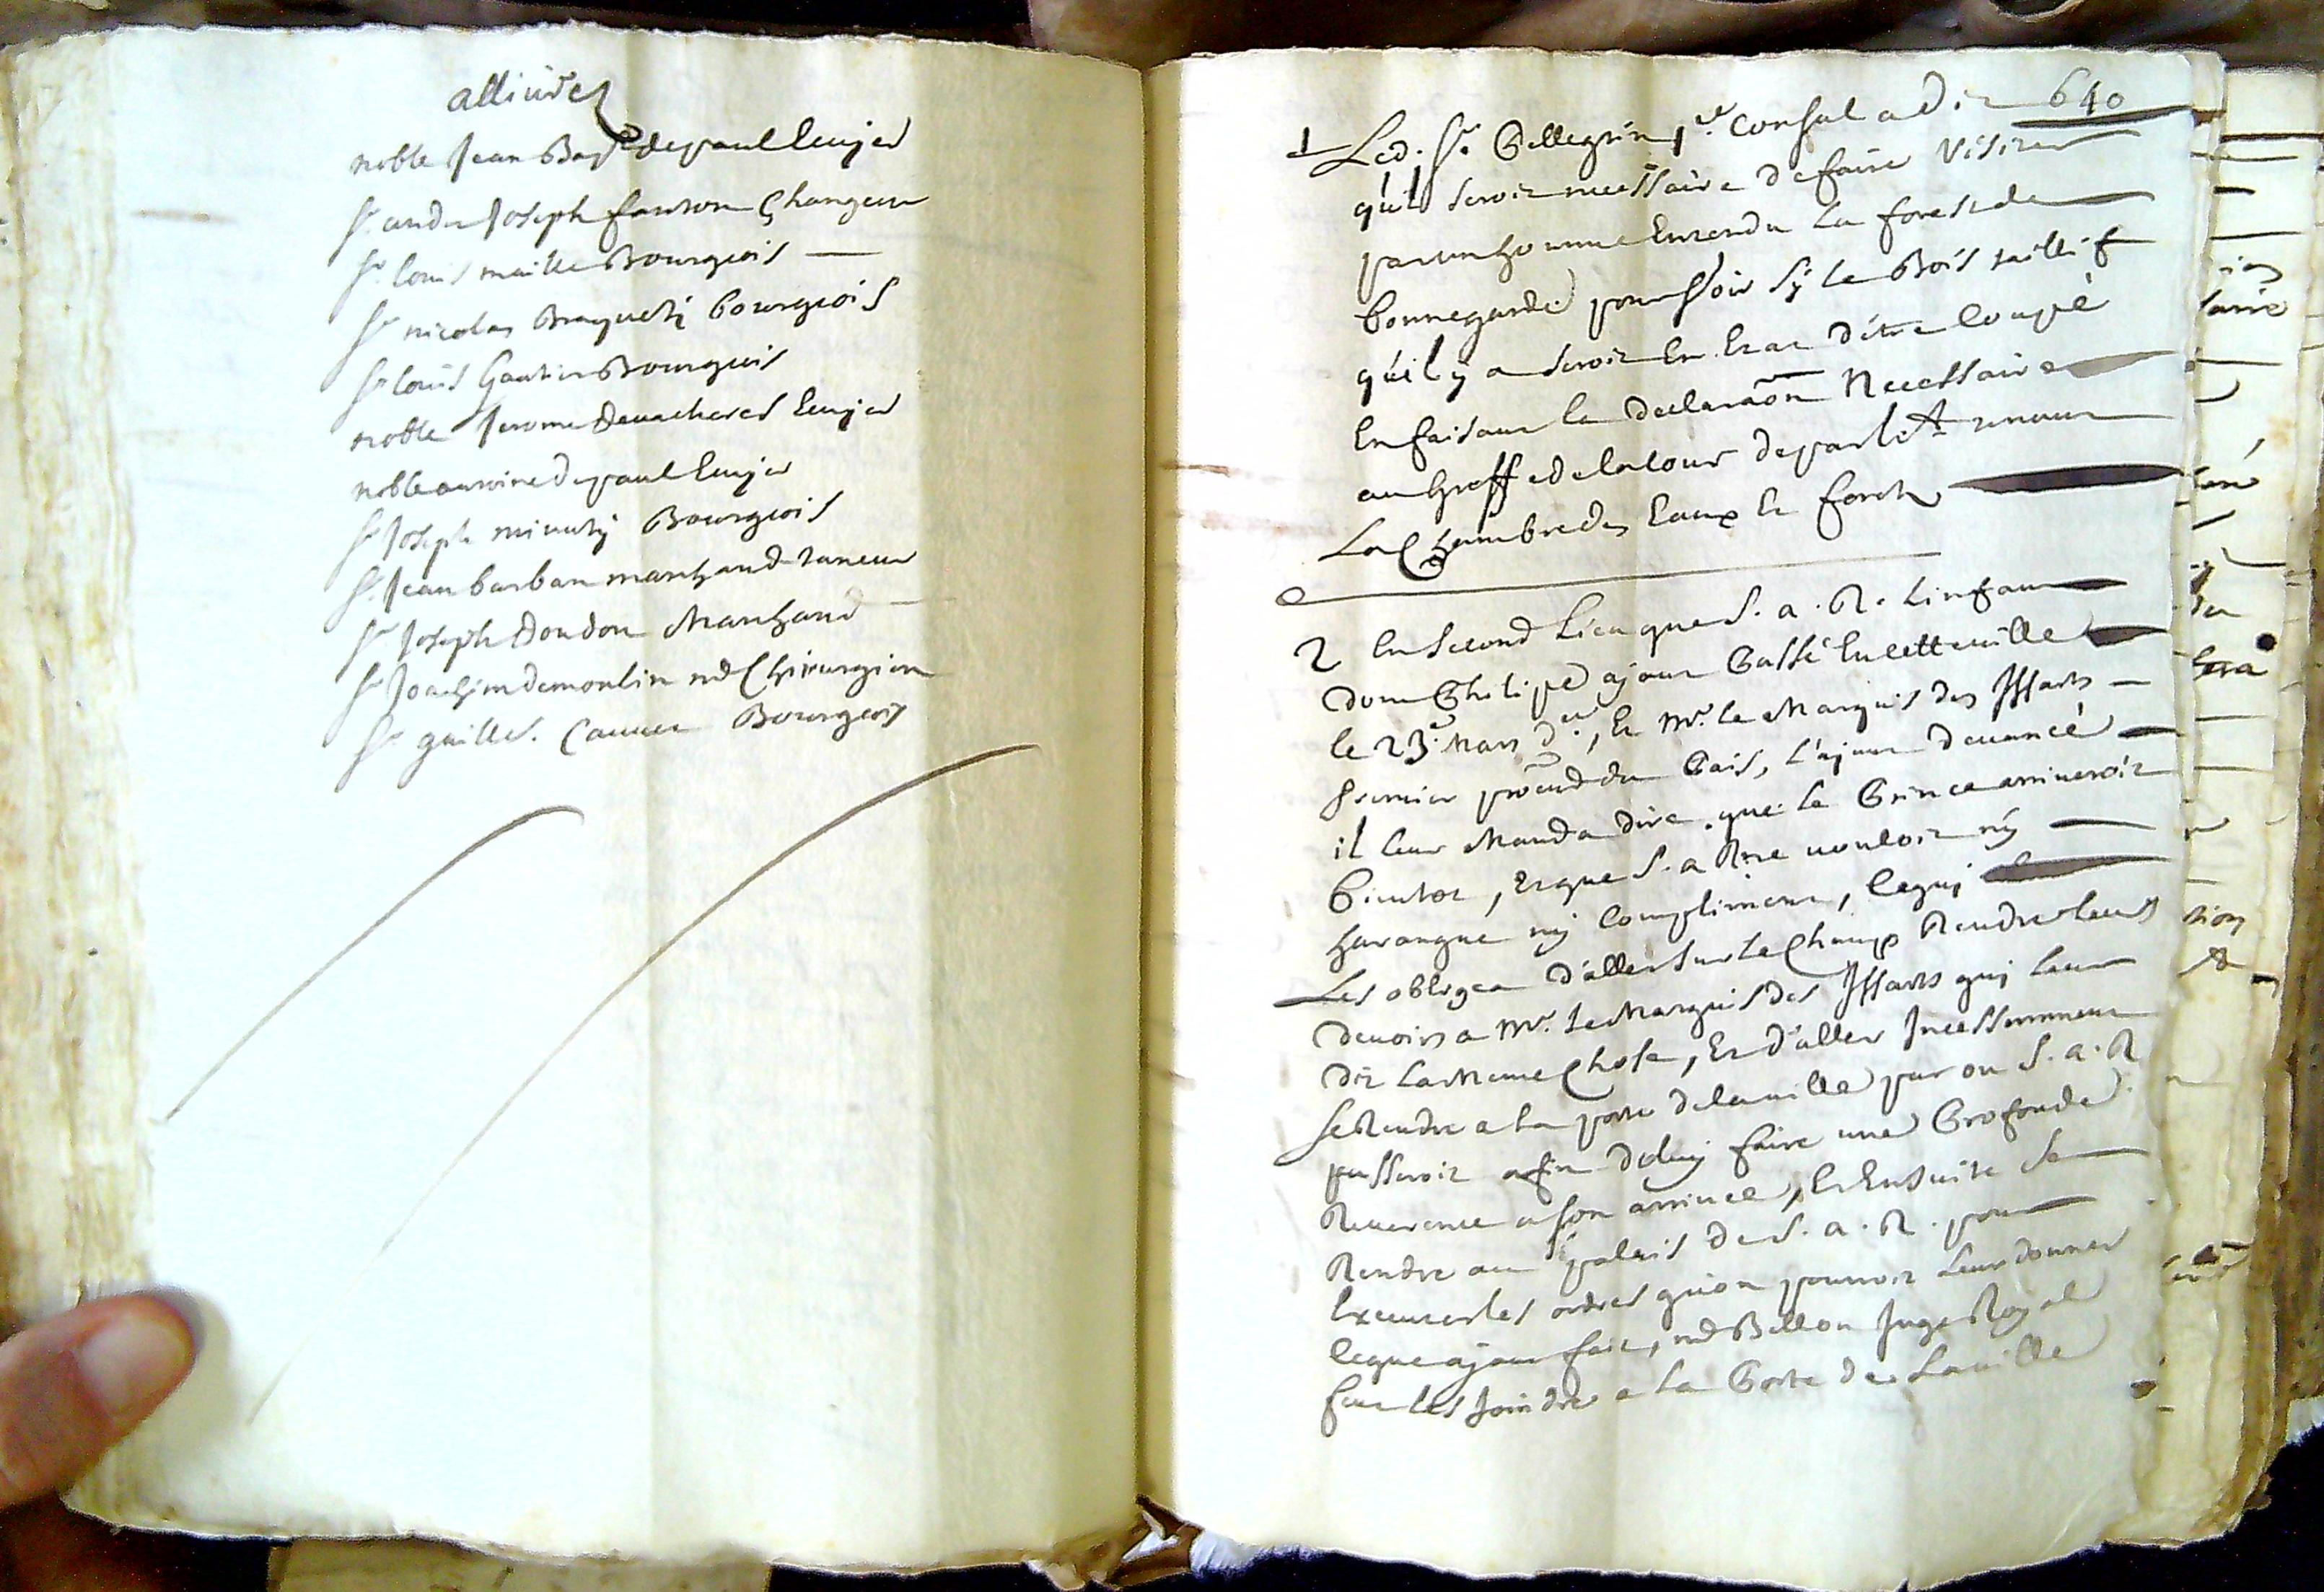 allivrés
noble Jean Bapt.e depaul Ecuyer
Sr. andré Joseph fauron Changeur
Sr. louis maille Bourgeois
Sr nicolas Braquety bourgeois
Sr louis Gautier Bourgeois
noble Jerome devacheres Ecuyer
noble antoine depaul Ecuyer
Sr Joseph minuty Bourgeois
Sr. Jean barban marchand taneur
Sr Joseph Dondon Marchand
Sr Joachim demoulin me Chirurgien
Sr guille. Bourgeois
640
1 Led. Sr. Pellegrin 1er. Consul a dit
qu'il seroit necessaire de faire Visiter
par un homme Entendu la forest de
bonnegarde pour voir sy le Bois taillif
qu'il y a seroit En Etat d'être coupé
En faisant la declaraõn Necessaire
au Greffe de la cour de parlet. tenant
La Chambre des Eaux Et forets
2 En second Lieu que S. a. R. L'infant
dom Philipe ayant Passé En cette ville
le 23e. Mars der., Et Mr. le Marquis des Issarts
premier du Pais, L'ayant devancé
il leur Manda dire que le Prince arriveroit
bientot, Et que S. a R ne vouloit ny
harangue ny Compliment, Ce qui
Les obligea d'aller sur le Champ Rendre leurs
devoirs a Mr. le Marquis des Issarts qui leur
dit La Meme Chose, Et d'aller Incessamment
se Rendre a la porte de la ville par ou S. a. R
passeroit afin de luy faire une Profonde
Reverence a son arrivée, Et Ensuite se
Rendre au palais de S. a. R. pour
Executer les ordres qu'on pouvoit Leur donner
Ce que ayant fait, me Billon Juge Royal
fut les Joindre a la Porte de La ville